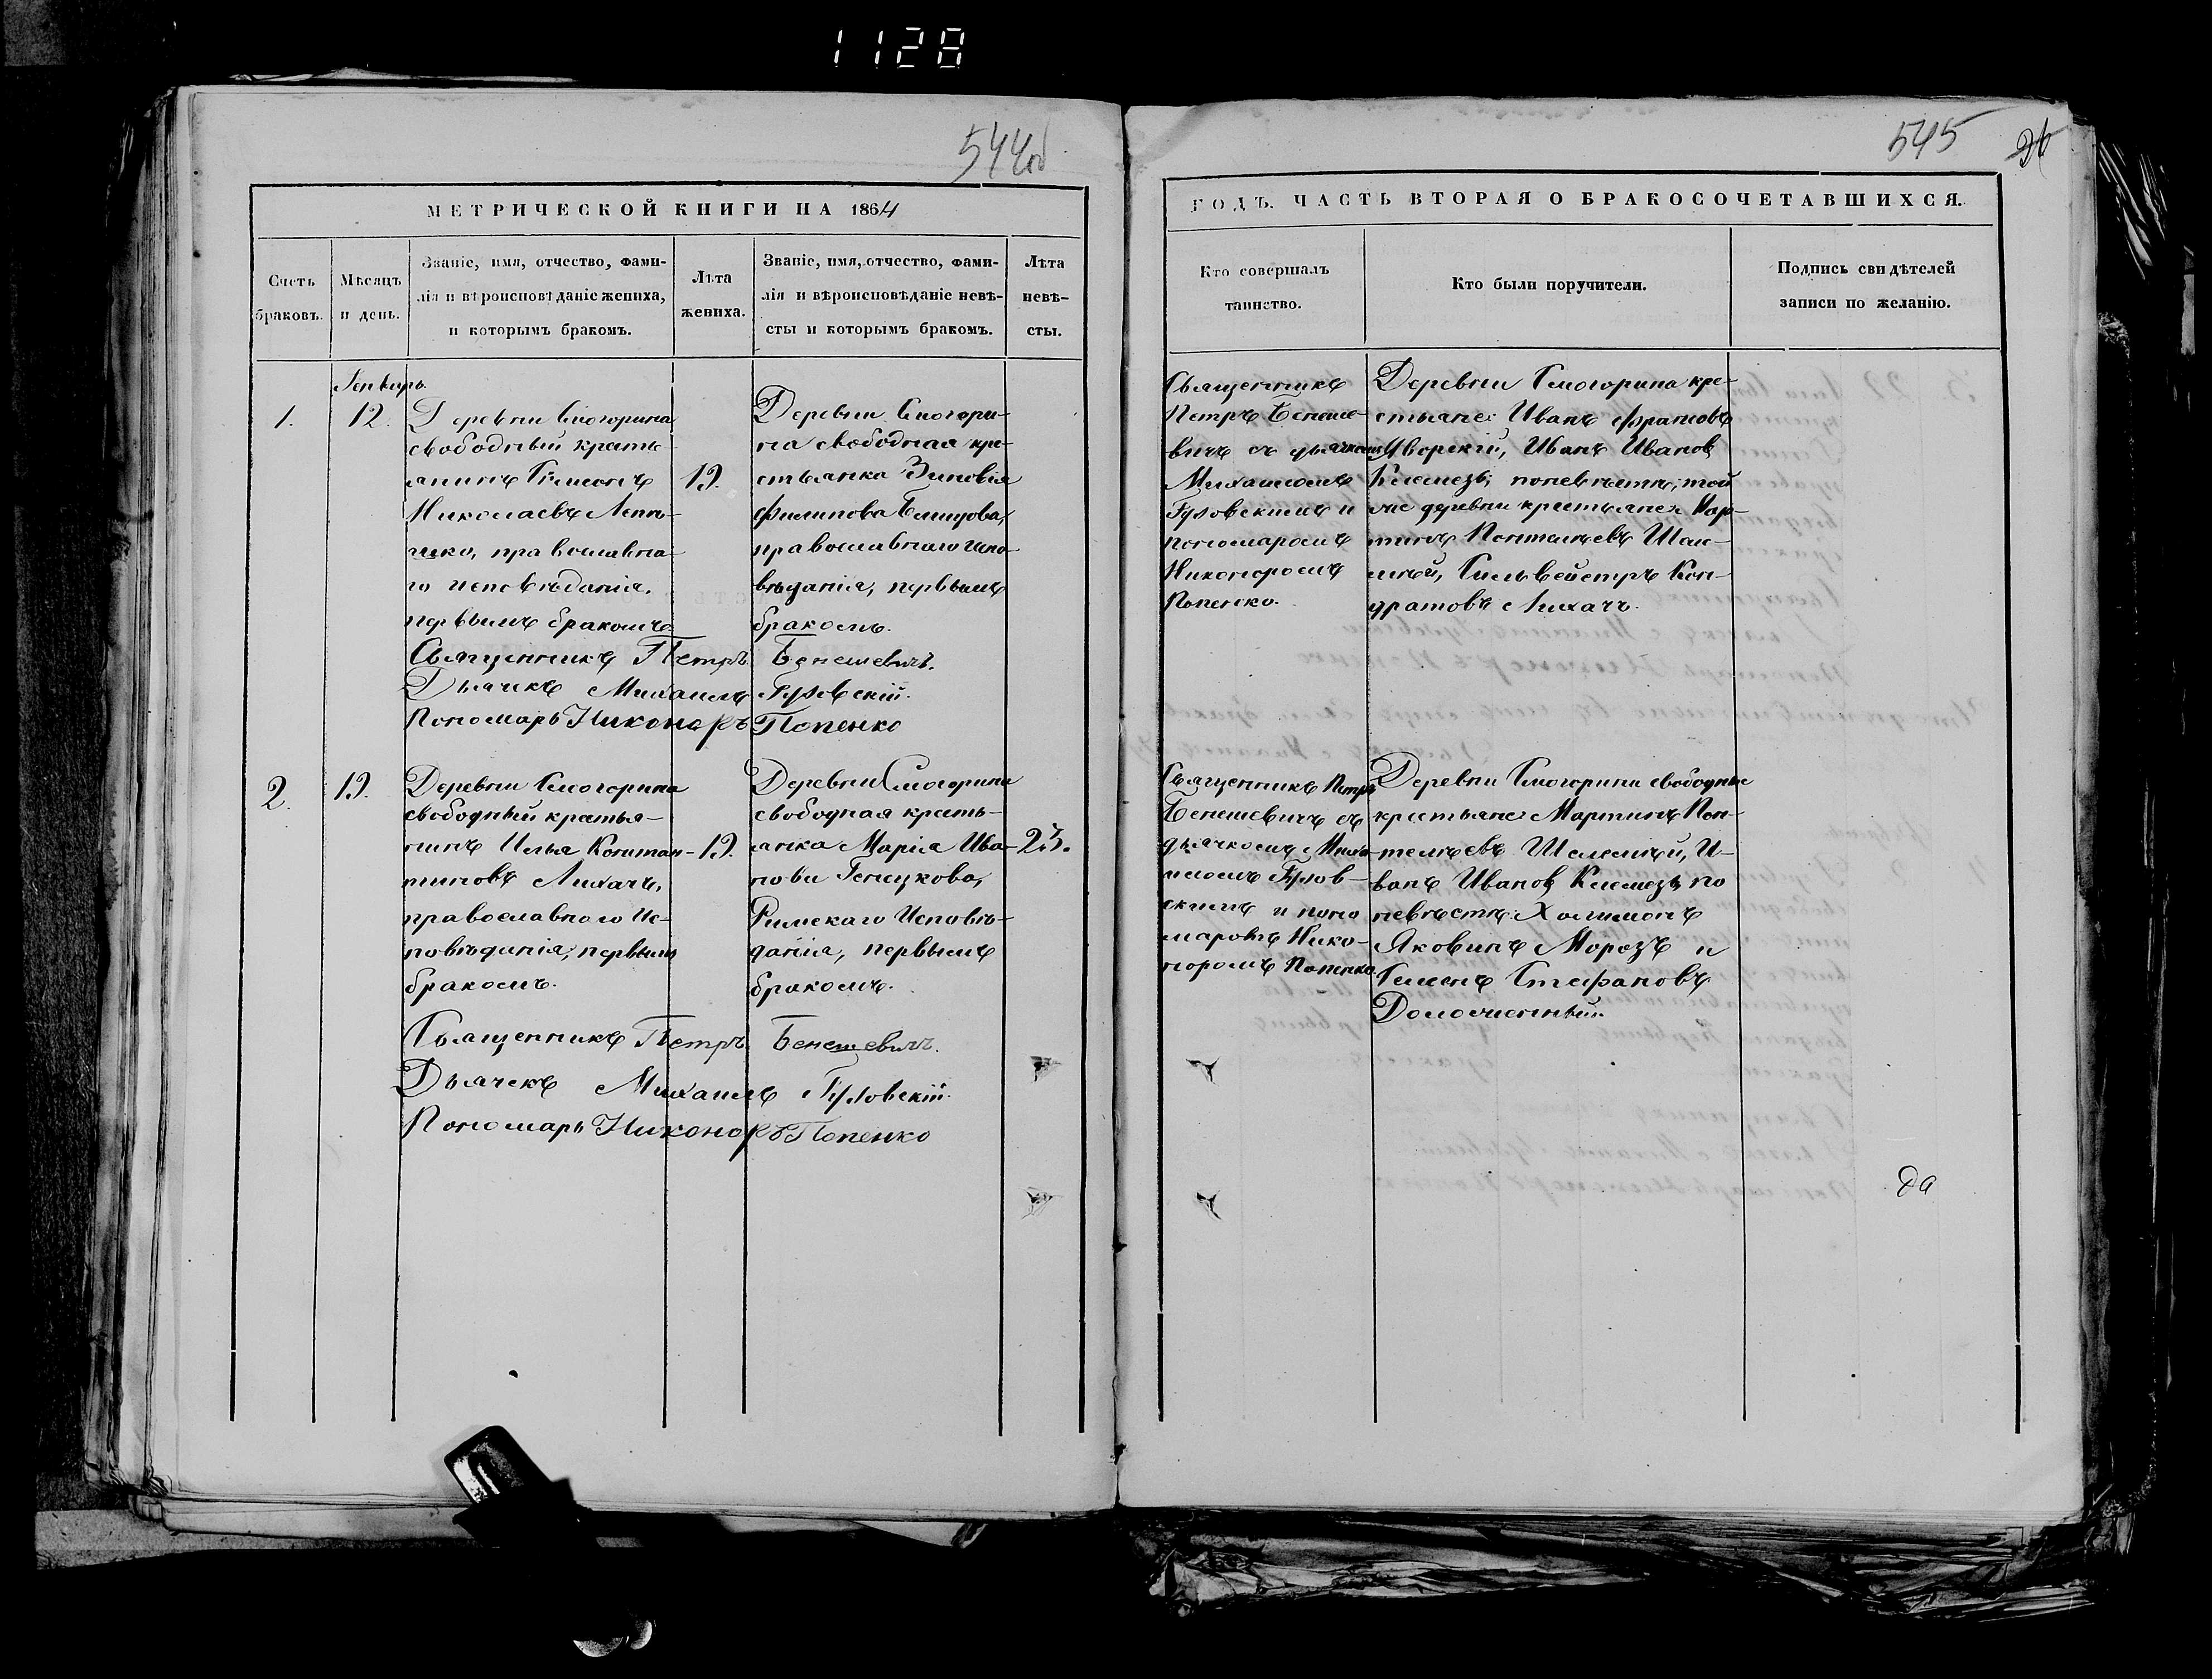 1128
544об
МЕТРИЧЕСКОЙ КНИГИ НА 1864
Счетъ
браковъ.
Мѣсяцъ
и день.
Званіе, имя, отчество, фами-
лія и вѣроисповѣданіе жениха,
и которымъ бракомъ.
Лѣта
жениха.
Званіе, имя, отчество, фами-
лія и вѣроисповѣданіе невѣ-
сты и которымъ бракомъ.
Лѣта
невѣ-
сты.
1.
Генварь
12.
Деревни Смогорина
свободный кресть-
янинъ Симонъ
Николаевъ
православна-
го исповѣданія,
первымъ бракомъ
19.
Деревни Смогори-
на свободная кре-
стьянка Зиновія
Филипова
православнаго испо-
вѣданія, первымъ
бракомъ.
Священникъ Петръ Бенешевичъ.
Дьячекъ Михаилъ Гузовскій.
Пономарь Никоноръ Попенко
2.
19.
Деревни Смогорина
свободный крестья-
нинъ Илья Констан-
тиновъ Лихачъ,
православного Ис-
повѣданія, первымъ
бракомъ.
19.
Деревни Смогорина
свободная кресть-
янка Марія Ива-
нова
Римскаго Исповѣ-
данія, первымъ
бракомъ.
23.
Священникъ Петръ Бенешевичъ.
Дьячекъ Михаилъ Гузовскій
Пономарь Никоноръ Попенко
545
26
ГОДЪ. ЧАСТЬ ВТОРАЯ О БРАКОСОЧЕТАВШИХСЯ.
Кто совершалъ
таинство.
Кто были поручители.
Подпись свидѣтелей
записи по желанію.
Священникъ
Петръ Бенеше-
вичъ съ дьячкомъ
Михаиломъ
Гузовскимъ и
пономаромъ
Никоноромъ
Попенко.
Деревни Смогорина кре-
стьяне: Иванъ Францовъ
Яворскій, Иванъ Ивановъ
Клемезъ; по невѣстѣ; той
же деревни крестьяне: Мар-
тинъ Пантелѣевъ
Сильвейстръ Кон-
дратовъ Лихачъ.
Священникъ Петръ
Бенешевичъ съ
дьячкомъ Миха-
иломъ Гузов-
скимъ и поно
маромъ Нико-
норомъ Попенко.
Деревни Смогорина свободные
крестьяне: Мартинъ Пан-
телѣевъ И-
ванъ Ивановъ Клемезъ, по
невѣстѣ: Халимонъ
Яковинъ Морозъ и
Симонъ Стефановъ
да